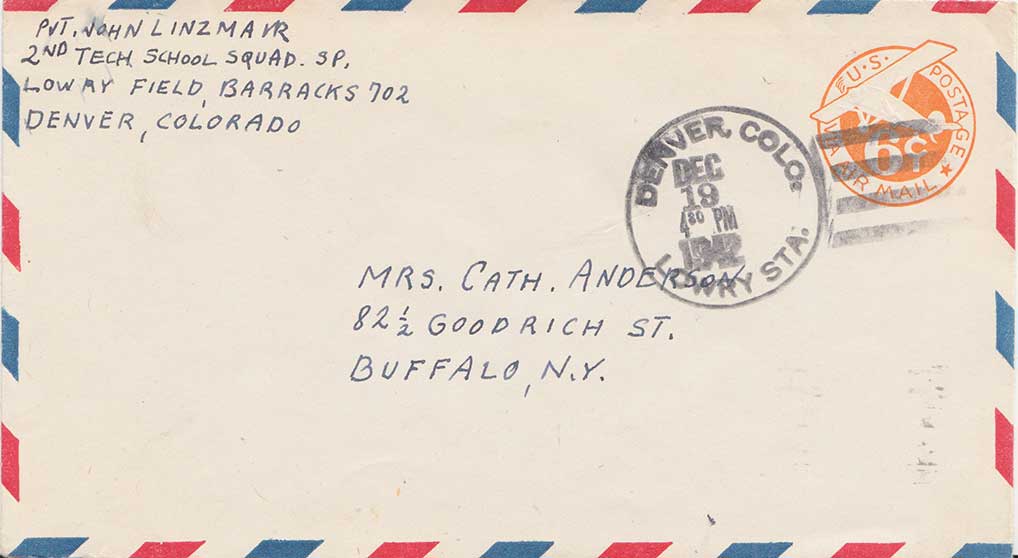 PVT. JOHN LINZMAYR
2ND TECH. SCHOOL SQUAD. SP.
LOWRY FIELD, BARRACKS 702
DENVER, COLORADO
U.S. POSTAGE
6¢
VIA AIR MAIL
DENVER, COLO.
DEC
19
4 30 PM
1942
LOWRY STA.
MRS. CATH. ANDERSON
82 1/2 GOODRICH ST.
BUFFALO, N.Y.